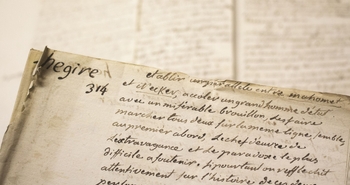 hegire
314
établir un parallele entre mahomet
et Necker, accoler un grand homme d'état
avec un misérable brouillon, les faire
marcher tous deux sur la meme ligne, semble,
au premier abord, le chef d'œuvre de
l'extravagance et le paradoxe le plus
difficile a soutenir; et pourtant on reflechit
attentivement sur l'histoire de ces deux